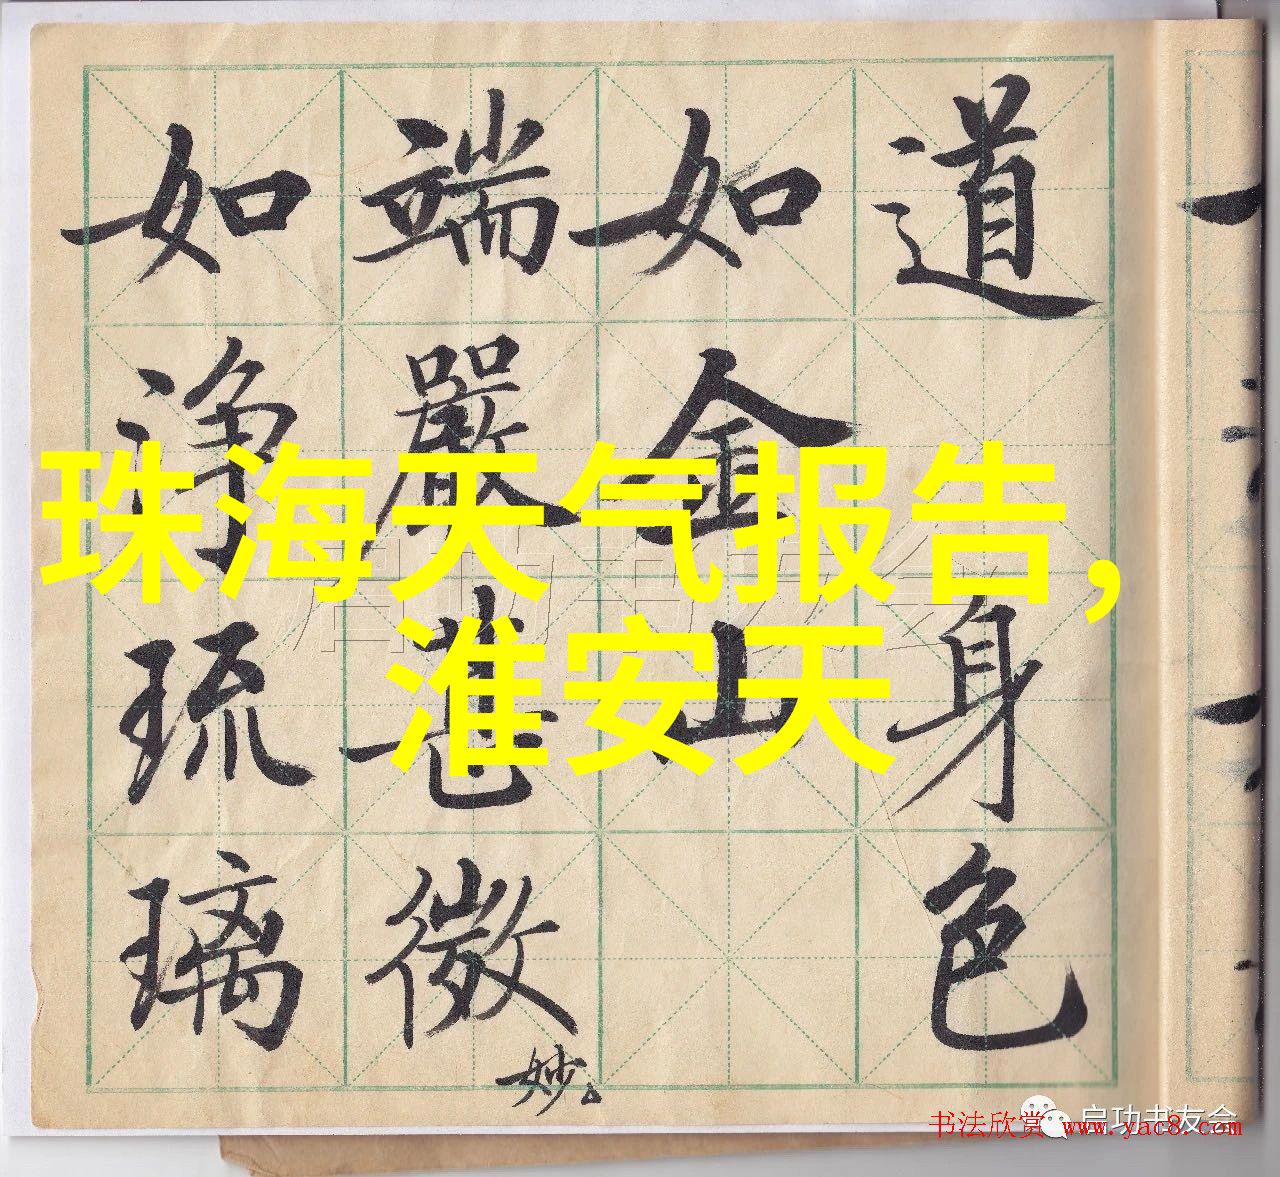 道
身色
如金山
端嚴甚微妙
如淨琉璃
珠海天气报告,
淮安天
启功书友会
启功书友会
书法欣赏 www.yac8.com